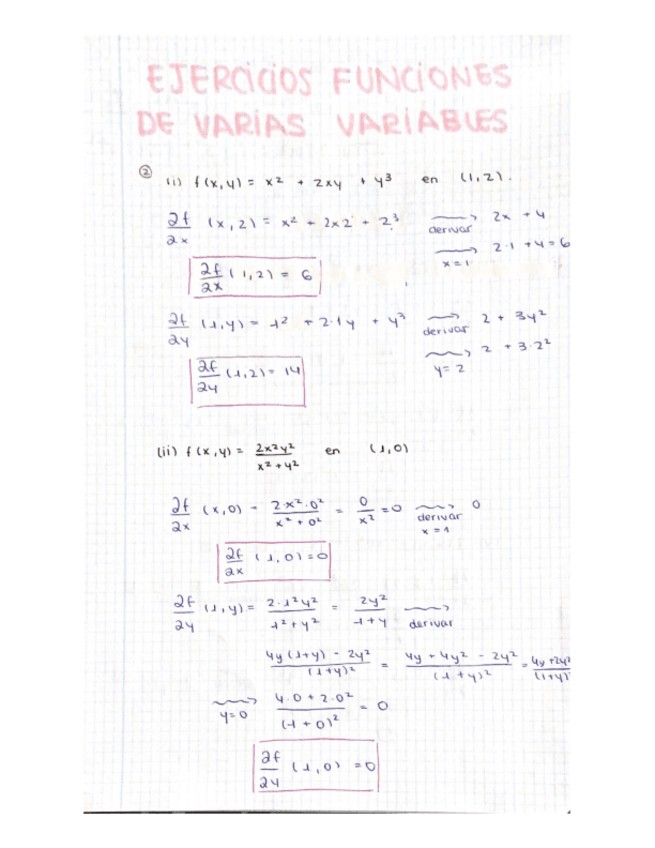 EJERCICIOS FUNCIONES
DE VARIAS VARIABLES
② (i) f(x,y) = x² + 2xy + y³ en (1,2).
∂f/∂x (x,2) = x² + 2x2 + 2³ ⟿ derivar 2x + 4
⟿ x=1 2·1 + 4 = 6
∂f/∂x (1,2) = 6
∂f/∂y (1,y) = 1² + 2·1y + y³ ⟿ derivar 2 + 3y²
⟿ y=2 2 + 3·2²
∂f/∂y (1,2) = 14
(ii) f(x,y) = 2x²y²/x²+y² en (1,0)
∂f/∂x (x,0) = 2·x²·0²/x²+0² = 0/x² = 0 ⟿ derivar x=1 0
∂f/∂x (1,0) = 0
∂f/∂y (1,y) = 2·1²y²/1²+y² = 2y²/1+y ⟿ derivar
4y(1+y) - 2y²/(1+y)² = 4y + 4y² - 2y²/(1+y)² = 4y+2y²/(1+y)
⟿ y=0 4·0+2·0²/(1+0)² = 0
∂f/∂y (1,0) = 0